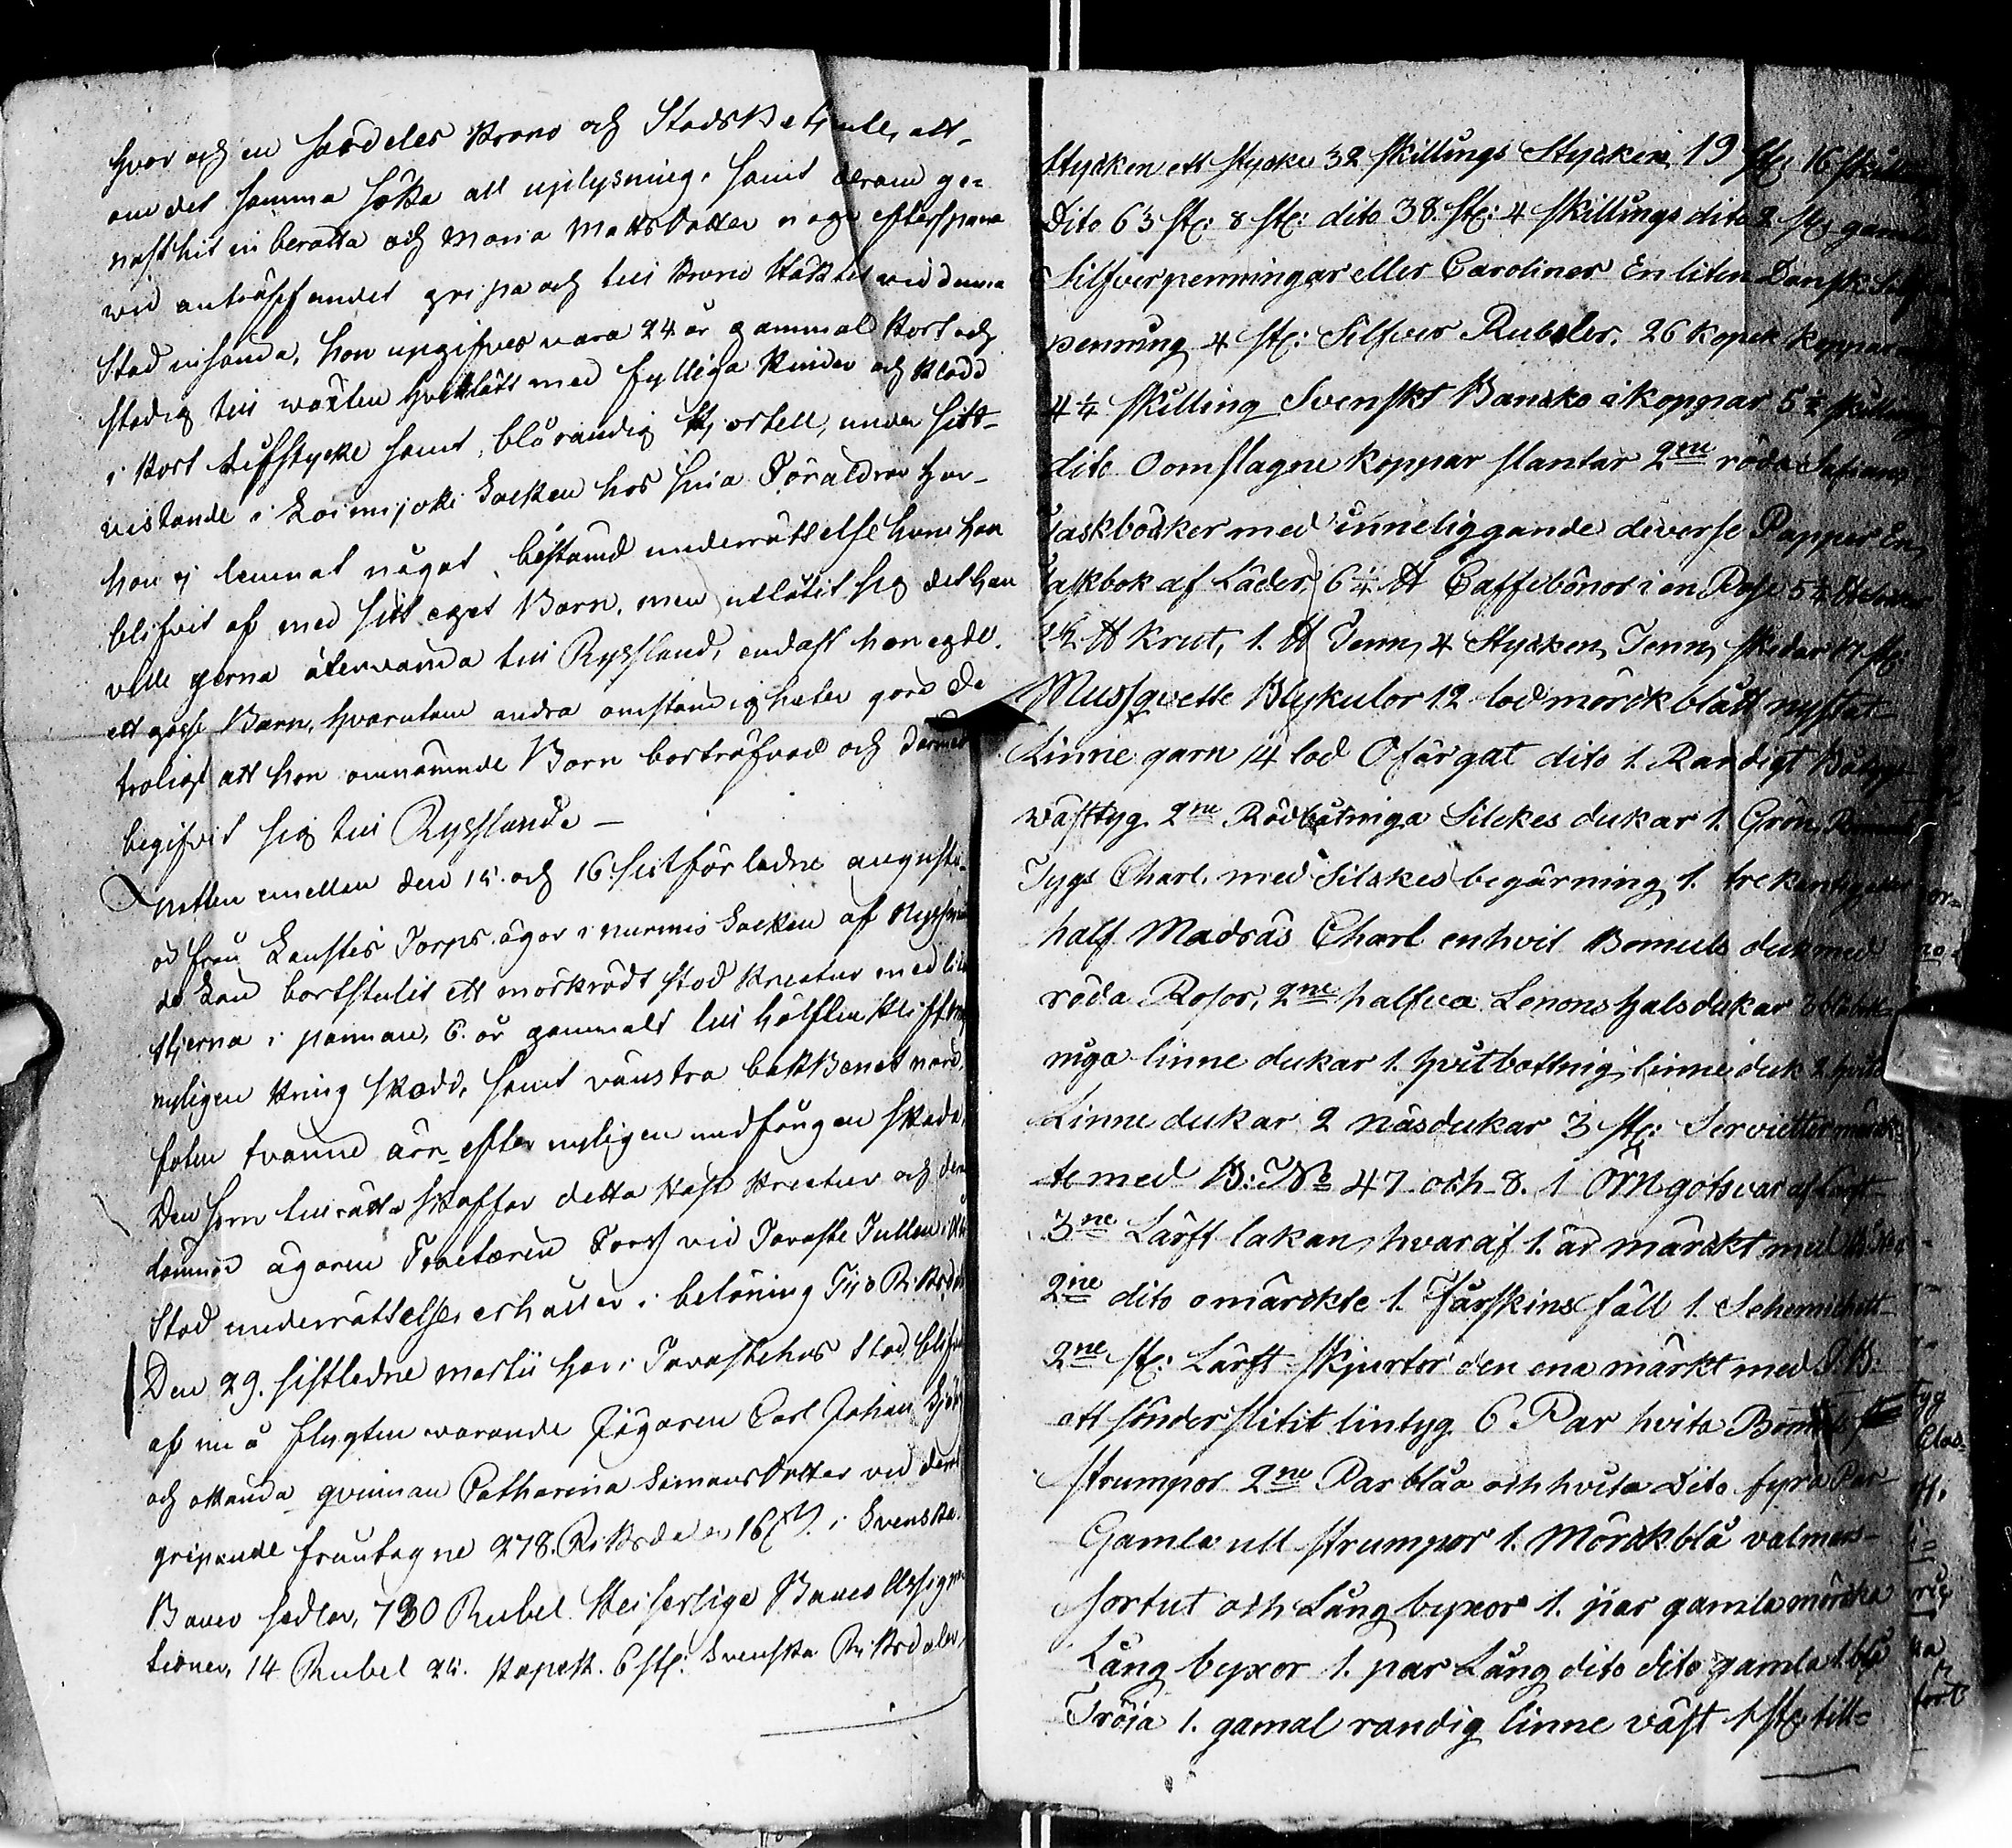 hvar och en särdeles Krono och StadsBetjente, att
om det samma söka all uplysning, samt derom ge-
nast hit in berätta och Maria MattsDotter noga efterspana
wid anträffandet gripa och till Krono Häktet wid denna
Stad insända, hon upgifves vara 24 år gammal Kort och
stadig till wäxten hvitlätt med fylliga Kinder och Klädd
i Kort lifstycke samt blårandig Kjortell, under sitt
vistande i Loimijoki Socken hos sina Föräldrar har
hon ej lemnat något bestämd underrättelse huru hon
blifvit af med sitt eget Barn, men utlåtit sig det hon
ville gerna återvända till Ryssland, endast hon egde
ett gosse Barn, hvarutom andra omständigheter göra de
troligt att hon omnämnde Barn bortröfvad och dermed
begifvit sig till Ryssland. —
Natten emellan den 15 och 16 sistförledne augusti
är från Laustis Torps ägor i Nurmis Socken af
bortstulit ett mörkrödt Stod Kreatur med liten
stjerna i pannan, 6. år gammalt till hälften
nyligen Kring Skodd, samt vänstra bakBenet
foten tvänne ärr efter nyligen undfången Skada,
Den som tillrätta skaffar detta Häst Kreatur och
lämnar ägaren Tracteuren Fors vid Tavaste Tullen i
Stad underrättelse, erhåller i belöning Tijo Riksdaler
Den 29. sistledne Martii har i Tavastehus Stad blifvit
af en å flygten warande Jägaren Carl Johan
och okända qvinnan Catharina SimonsDotter vid deras
gripande fråntagne 278. Riksdaler 16 i Svenska
Banco sedlar, 730 Rubel Keiserlige Banco Assigna-
tioner, 14 Rubel 25. Kopek. 6 st: Svenska Riksdaler,
Stycken ett stycke 32 Skillings Stycken, 19 st: 16 Skillings
Dito 63 st: 8 st: dito 38. st: 4 Skillings dito 2 st: gamla
Silfverpenningar eller Caroliner En liten Dansk Silfver
penning 4 st: Silfver Rubeler, 26 kopek koppar
4¼ Skilling Svenskt Bancko i koppar 5½ Skilling
dito Oomslagne koppar slantar 2ne röda Safians
Taskböcker med inneliggande diverse Papper En
Taskbok af Läder, 6¼ ℔ Caffebönor i en Påse 5½
½ ℔ Krut, 1. ℔ Tenn, 4 Stycken, Tenn, Skedar 17 st:
Mussqvette Blykulor 12 lod mörckblått nystat
Linne garn 14 lod Ofärgat dito 1. Randigt
västtyg 2ne Rödbåtniga Silckes dukar 1. Grön
Tygs Charl. med Silckes begärning 1. trekantig
half Madrâs Charl en hvit Bomuls duk med
röda Rosor, 2ne halfva Lenons halsdukar
niga linne dukar 1. hvitbottnig linne duk 2. hvita
Linne dukar 2 näsdukar 3 st: Servietter märck-
te med B: No 47 och 8. 1 Örngotsvar af lärft
3ne Lärft lakan, hvaraf 1. är märckt med
2ne dito omärckte 1. Fårskins fäll 1.
2ne st: Lärft Skjurtor den ena märkt med
ett sönder slitit lintyg. 6 Par hvita Bomuls
strumpor 2ne Par blåa och hvita Dito fyra Par
Gamla ull strumpor 1. Mörckblå valmars-
sortut och Lång byxor 1. par gamla mörcka
Lång byxor 1. par Lång dito dito gamla 1. blå
Tröja 1. gamal randig linne väst 1 st: till-